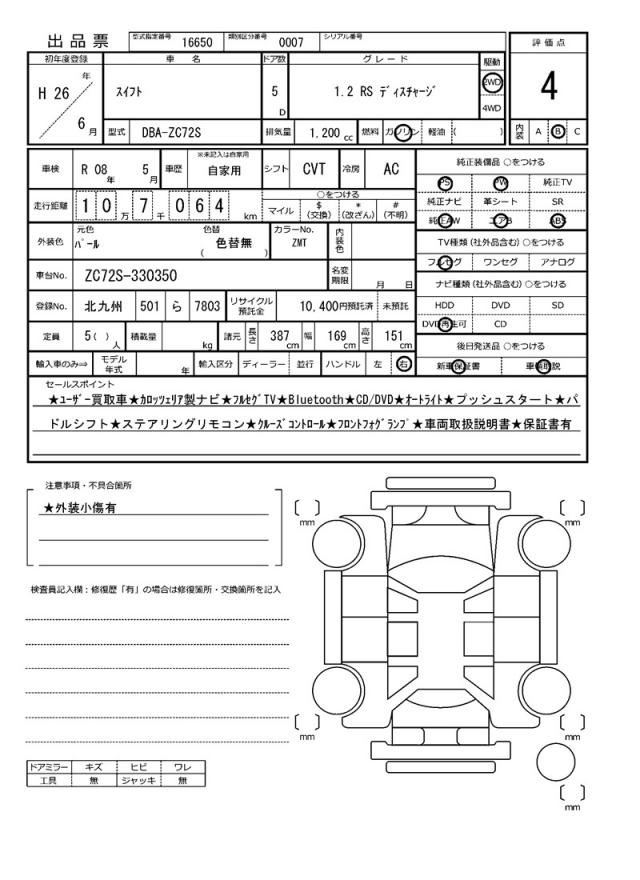 出品票 型式指定番号 16650 類別区分番号 0007 シリアル番号
評価点
初年度登録 車名 ドア数 グレード 駆動
H 26 年 スイフト 5 D 1.2 RS ディスチャージ 2WD 4
4WD
6 月 型式 DBA-ZC72S 排気量 1,200 cc 燃料 ガソリン 軽油 ( ) 内装 A B C
車検 R 08 年 5 月 車歴 ※未記入は自家用 自家用 シフト CVT 冷房 AC 純正装備品 ○をつける
PS PW 純正TV
走行距離 1 0 万 7 千 0 6 4 km ○をつける 純正ナビ 革シート SR
マイル $(交換) *(改ざん) #(不明) 純正AW エアB ABS
外装色 元色 パール 色替 色替無 ( ) カラーNo. ZMT 内装色 TV種類(社外品含む)○をつける
フルセグ ワンセグ アナログ
車台No. ZC72S-330350 名変期限 月 日 ナビ種類(社外品含む)○をつける
登録No. 北九州 501 ら 7803 リサイクル預託金 10,400円預託済 未預託 HDD DVD SD
DVD再生可 CD
定員 5( ) 人 積載量 kg 諸元 長さ 387 cm 幅 169 cm 高さ 151 cm 後日発送品 ○をつける
輸入車のみ⇒ モデル年式 年 輸入区分 ディーラー 並行 ハンドル 左 右 新車保証書 車輌取説
セールスポイント
★ユーザー買取車★カロッツェリア製ナビ★フルセグTV★Bluetooth★CD/DVD★オートライト★プッシュスタート★パ
ドルシフト★ステアリングリモコン★クルーズコントロール★フロントフォグランプ★車両取扱説明書★保証書有
注意事項・不具合箇所
★外装小傷有
mm mm
検査員記入欄:修復歴「有」の場合は修復箇所・交換箇所を記入
mm mm
ドアミラー キズ ヒビ ワレ
工具 無 ジャッキ 無
mm